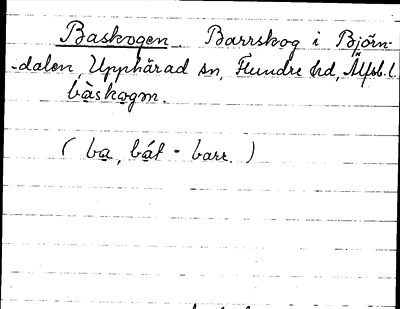 Baskogen. Barrskog i Björn-
-dalen, Upphärad sn, Flundre hd, Älfsb. l.
bàskogm.
(ba, bát - barr.)